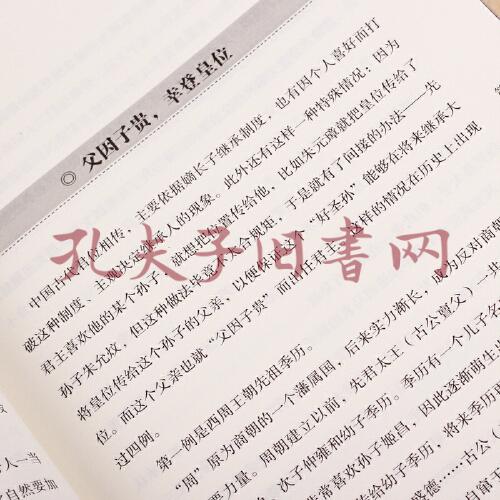 ◎ 父因子贵，幸登皇位
中国古代皇位相传，主要依据嫡长子继承制度，也有因个人喜好而打
破这种制度、主观决定继承人的现象。此外还有这样一种特殊情况：因为
君主喜欢他的某个孙子，就想把皇位置传给他，比如朱元璋就把皇位传给了
孙子朱允炆，但这种做法毕竟不合规矩，于是就有了间接的办法——先
将皇位传给这个孙子的父亲，以便保证这个“好圣孙”能够在将来继承大
位。而这个父亲也就“父因子贵”而出任君主。这样的情况在历史上出现
过四例。
第一例是西周王朝先祖季历。
“周”原为商朝的一个藩属国，后来实力渐长，成为反对商朝
要力量。周朝建立以前，先君太王（古公亶父）一共
次子仲雍和幼子季历。季历有一个儿子名
常喜欢孙子姬昌，因此逐渐萌生
传给幼子季历，将来季历
德……古公
人一当
自然要加
孔夫子旧书网